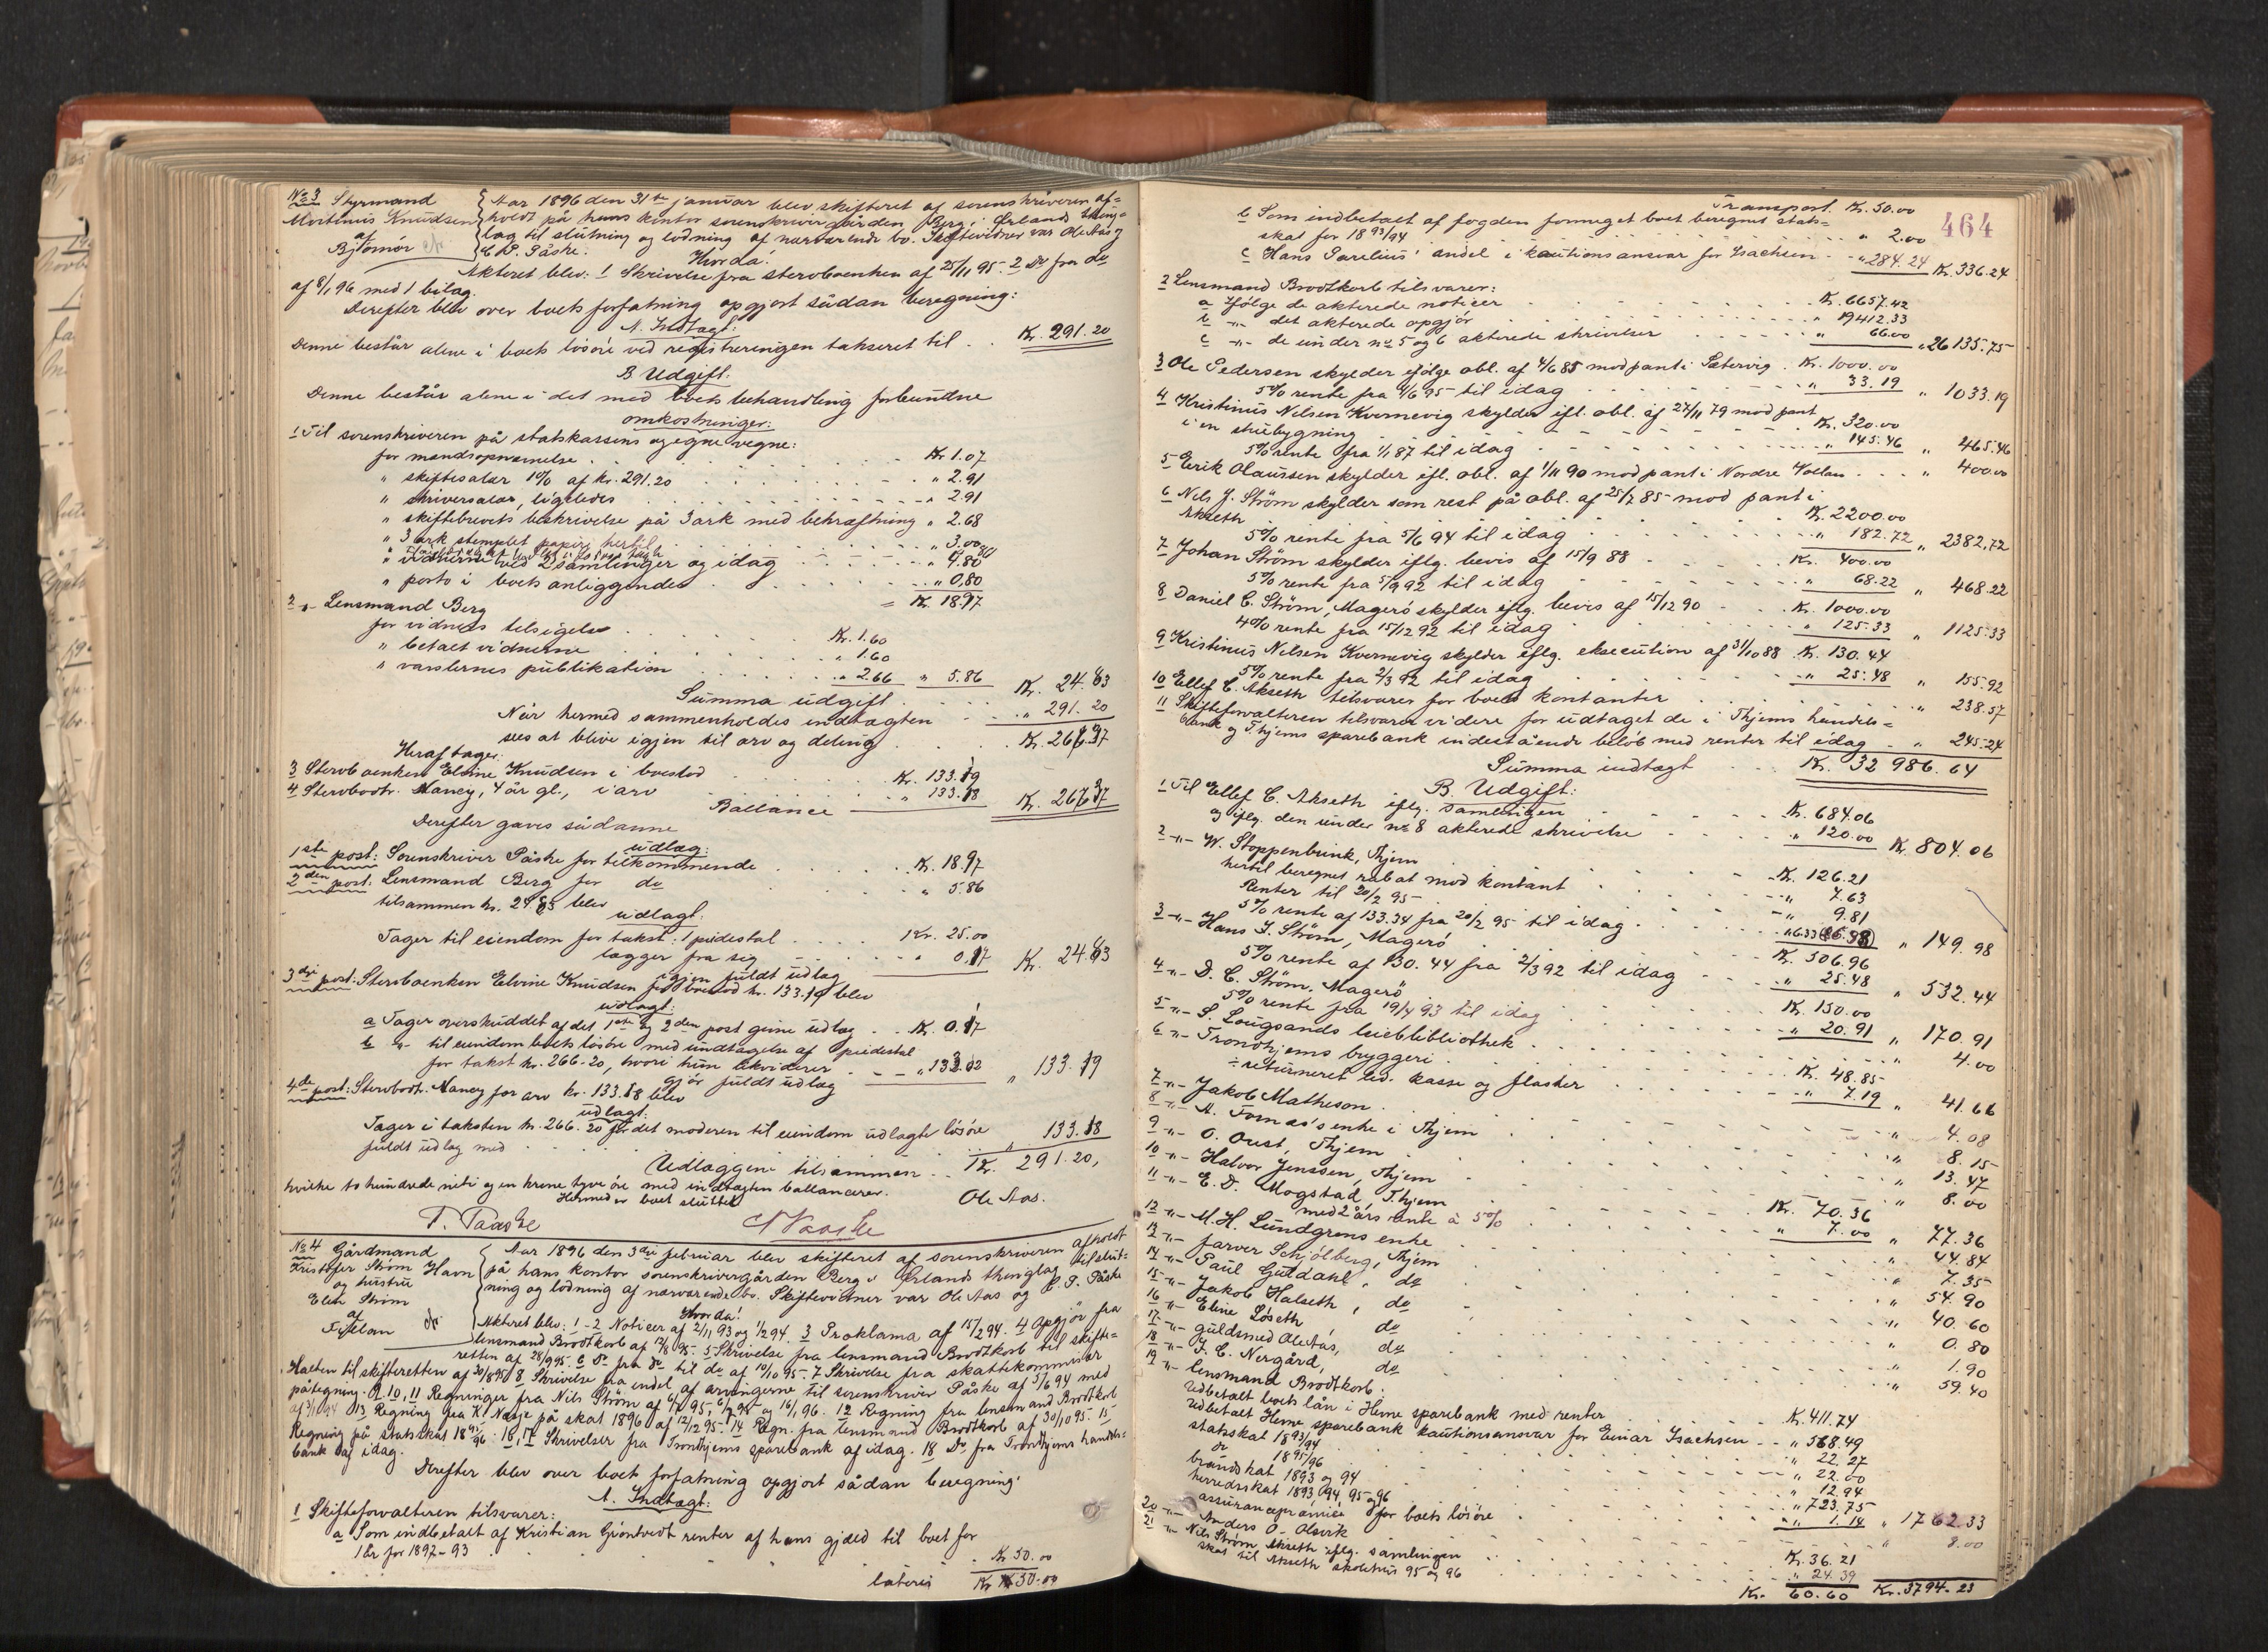 No 3 Styrmand
Mortinus Knudsen
af
Bjømør
Aar 1896 den 31te januar blev skifteret af sorenskriveren af-
holdt på hans kontor sorenskrivergården Berg i Ørlands thing-
lag til slutning og lodning af nærværende bo. Skiftevidner var Ole Aas og
C. P. Påske.
Hvorda!
Akteret blev: 1 Skrivelse fra sterboenken af 25/11 95. 2 Do fra do
af 8/1 96 med 1 bilag.
Derefter blev over boets forfatning opgjort sådan beregning:
A. Indtægt:
Denne består alene i boets løsøre ved registreringen takseret til . . Kr. 291.20
B Udgift:
Denne består alene i det med boets behandling forbundne
omkostninger:
1 Til sorenskriveren på statskassens og egne vegne:
for mandsopnævnelse . . Kr 1.07
" skiftesalær 1% af kr. 291.20 . . " 2.91
" skriversalær, ligeledes . . " 2.91
" skiftebrevets beskrivelse på 3 ark med bekræftning " 2.68
" 3 ark stemplet papir hertil . . " 3.00
" vidnerne ved 2 samlinger og idag . . " 4.80
" porto i boets anliggender . . " 0.80
= Kr. 18.97
2 -"- Lensmand Berg
for vidners tilsigelse . . Kr. 1.60
" betalt vidnerne . . " 1.60
" varslernes publikation . . " 2.66 " 5.86
Summa udgift . . Kr. 24.83
Når hermed sammenholdes indtægten . . " 291.20
sees at blive igjen til arv og deling . . Kr. 266.37
Heraf tager:
3 Sterboenken Elvine Knudsen i boeslod . . Kr. 133.19
4 Sterbodtr. Nancy, 4 år gl., i arv . . " 133.18
Ballance Kr. 266.37
Derefter gaves sådanne
udlæg:
1ste post: Sorenskriver Påske for tilkommende . . Kr. 18.97
2den post: Lensmand Berg for do . . " 5.86
tilsammen kr. 24.83 blev
udlagt:
Tager til eiendom for takst: 1 piedestal . . Kr. 25.00
lægger fra sig . . " 0.17 Kr. 24.83
igjen fuldt udlæg
3die post: Sterboenken Elvine Knudsen for boeslod kr. 133.19 blev
udlagt:
a Tager overskuddet af det 1ste og 2den post givne udlæg . . Kr. 0.17
b -"- til eiendom boets løsøre med undtagelse af piedestal
for takst kr. 266.20, hvori hun likviderer . . " 133.02
gjør fuldt udlæg " 133.19
4de post: Sterbodtr. Nancy for arv kr. 133.18 blev
udlagt:
Tager i taksten kr. 266.20 for det moderen til eiendom udlagte løsøre
fuldt udlæg med . . " 133.18
Udlæggene tilsammen . . Kr. 291.20,
hvilke to hundrede niti og en krone tyve øre med indtægten ballancerer.
Hermed er boet sluttet
Ole Aas.
T. Paaske
No 4 Gårdmand
Kristofer Strøm Havn
og hustru
Elen Strøm
af
Aar 1896 den 3die februar blev skifteret af sorenskriveren afholdt
på hans kontor sorenskrivergården Berg i Ørlands thinglag til slut-
ning og lodning af nærværende bo. Skiftevidner var Ole Aas og C. P. Påske
Hvorda!
Akteret blev: 1-2 Noticer af 2/11 93 og 1/2 94. 3 Proklama af 15/2 94. 4 Opgjør fra
lensmand Brodtkorb af 12/8 95. 5 Skrivelse fra lensmand Brodtkorb til skifte-
retten af 28/9 95. 6 Do fra do til do af 10/10 95. 7 Skrivelse fra skattekommisær
Halten til skifteretten af 30/8 95 8 Skrivelse fra endel af arvingerne til sorenskriver Påske af 5/6 94 med
påtegning. 9. 10, 11 Regninger fra Nils Strøm af 6/7 95, 6/7 95 og 16/1 96. 12 Regning fra lensmand Brodtkorb
13 Regning fra K. Næsje på skat 1896 af 12/12 95. 14 Regn. fra lensmand Brodtkorb af 30/10 95. 15
Regning på statsskat 1895/96. 16, 17 Skrivelser fra Trondhjems sparebank af idag. 18 Do fra Trondhjems handels-
bank af idag.
Derefter blev over boets forfatning opgjort sådan beregning:
A. Indtægt:
1 Skifteforvalteren tilsvarer:
a Som indbetalt af Kristian Grøntvedt renter af hans gjæld til boet for
1 år for 1892-93 . . Kr 50.00
lateris Kr 50.00
464
Transport. Kr. 50.00
b Som indbetalt af fogden formeget boet beregnet stats-
skat for 1893/94 . . " 2.00
c Hans Parelius' andel i kautionsansvar for Isachsen . . " 284.24 Kr. 336.24
2 Lensmand Brodtkorb tilsvarer:
a Ifølge de akterede noticer . . Kr. 6657.42
b -"- det akterede opgjør . . " 19412.33
c -"- de under no 5 og 6 akterede skrivelser . . " 66.00 " 26135.75
3 Ole Pedersen skylder ifølge obl. af 4/6 85 mod pant i Sætervig . Kr. 1000.00
5% rente fra 4/6 95 til idag . . " 33.19 " 1033.19
4 Kristinus Nelsen Kvernevig skylder ifl. obl. af 27/11 79 mod pant
i en stuebygning . . Kr. 320.00
5% rente fra 1/1 87 til idag . . " 145.46 " 465.46
5 Erik Olaussen skylder ifl. obl. af 1/11 90 mod pant i Nordre . . " 400.00
6 Nils J. Strøm skylder som rest på obl. af 25/7 85 mod pant i
Akseth . . Kr. 2200.00
5% rente fra 5/6 94 til idag . . " 182.72 " 2382.72
7 Johan Strøm skylder iflg. bevis af 15/9 88 . . Kr. 400.00
5% rente fra 5/9 92 til idag . . " 68.22 " 468.22
8 Daniel C. Strøm, Magerø skylder iflg. bevis af 15/12 90 . . Kr. 1000.00
4% rente fra 15/12 92 til idag . . " 125.33 " 1125.33
9 Kristinus Nelsen Kvernevig skylder iflg. eksecution af 31/10 88 . Kr. 130.44
5% rente fra 2/3 92 til idag . . " 25.48 " 155.92
10 Ellef C. Akseth tilsvarer for boets kontanter . . " 238.57
11 Skifteforvalteren tilsvarer videre for udtaget de i Thjems handels-
bank og Thjems sparebank indestående beløb med renter til idag . . " 245.24
Summa indtægt . . Kr. 32 986.64
B. Udgift:
1 Til Ellef C. Akseth iflg. samlingen . . Kr. 684.06
og iflg. den under no 8 akterede skrivelse . . " 120.00 Kr. 804.06
2 -"- W. Stoppenbrink, Thjem . . Kr. 126.21
hertil beregnet rabat mod kontant . . " 7.63
Renter til 20/2 95 . . " 9.81
5% rente af 133.34 fra 20/2 95 til idag . . " 6.33 " 149.98
3 -"- Hans J. Strøm, Magerø . . Kr. 506.96
5% rente af 130.44 fra 2/3 92 til idag . . " 25.48 " 532.44
4 -"- D. C. Strøm, Magerø . . Kr. 150.00
5% rente fra 19/4 93 til idag . . " 20.91 " 170.91
5 -"- S. Lougsands leiebibliothek . . " 4.00
6 -"- Trondhjems bryggeri . . Kr. 48.85
÷ returneret led. kasse og flasker . . " 7.19 " 41.66
7 -"- Jakob Matheson . . " 4.08
8 -"- A. Tornæs's enke i Thjem . . " 8.15
9 -"- O. Oust, Thjem . . " 13.47
10 -"- Halvor Jenssen, Thjem . . " 8.00
11 -"- E. D. Mogstad, Thjem . . Kr. 70.36
med 2 års rente à 5% . . " 7.00 " 77.36
12 -"- M. H. Lundgrens enke . . " 44.84
13 -"- farver Schjølberg, Thjem . . " 7.35
14 -"- Paul Guldahl, do . . " 54.90
15 -"- Jakob Halseth, do . . " 40.60
16 -"- Eline Løseth, do . . " 0.80
17 -"- guldsmed Ole Aas, do . . " 1.90
18 -"- J. C. Nergård, do . . " 59.40
19 -"- lensmand Brodtkorb:
Udbetalt boets lån i Hevne sparebank med renter . . Kr. 411.74
Udbetalt Hevne sparebank kautionsansvar for Einar Isachsen . . " 568.49
statsskat 1893/94 . . " 22.27
do 1895/96 . . " 22.00
brandskat 1893 og 94 . . " 12.94
herredsskat 1893, 94, 95 og 96 . . " 723.75
assurancepræmie for boets løsøre . . " 1.14 " 1762.33
20 -"- Anders O. Olsvik . . " 8.00
21 -"- Nils Strøm, Akseth iflg. samlingen . . Kr. 36.21
skat til Akseth skolehus 95 og 96 . . " 24.39
Kr. 60.60 Kr. 3794.23